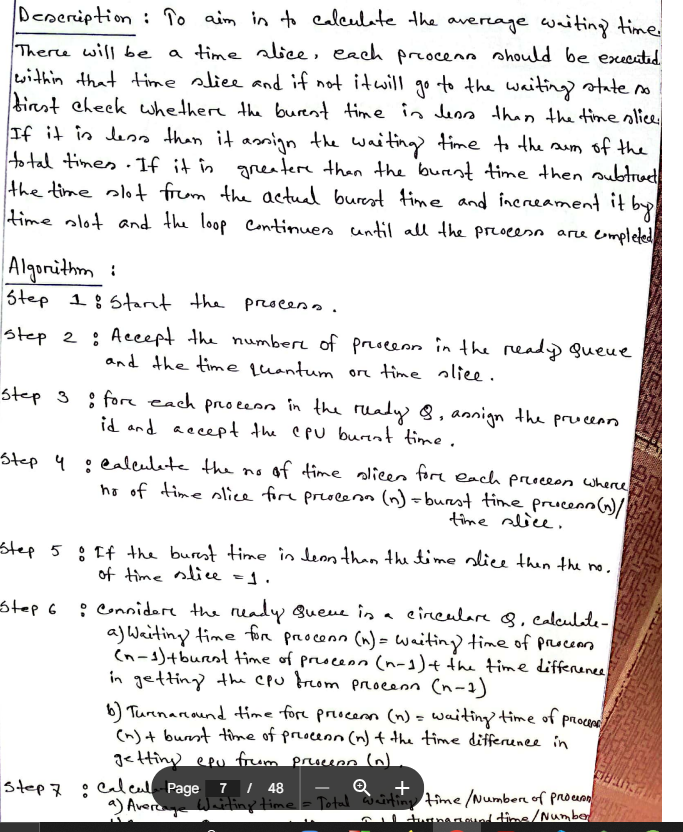 Description : To aim is to calculate the average waiting time.
There will be a time slice, each process should be executed
within that time slice and if not it will go to the waiting state so
first check whether the burst time is less than the time slice.
If it is less than it assign the waiting time to the sum of the
total times. If it is greater than the burst time then subtract
the time slot from the actual burst time and increament it by
time slot and the loop continues until all the process are completed
Algorithm :
Step 1 : Start the process.
Step 2 : Accept the number of process in the ready Queue
and the time quantum or time slice.
Step 3 : for each process in the ready Q, assign the process
id and accept the CPU burst time.
Step 4 : calculate the no of time slices for each process where
no of time slice for process (n) = burst time process(n)/
time slice.
Step 5 : If the burst time is less than the time slice then the no.
of time slice = 1.
Step 6 : Considare the ready Queue is a circular Q, calculate-
a) Waiting time for process (n) = waiting time of process
(n-1)+burst time of process (n-1)+ the time difference
in getting the CPU from process (n-1)
b) Turnaround time for process (n) = waiting time of process
(n) + burst time of process (n) + the time difference in
getting cpu from process (n).
Step 7 : Calcul
Page 7 / 48 − +
a) Average Waiting time = Total waiting time /Number of process
turnaround time /Number